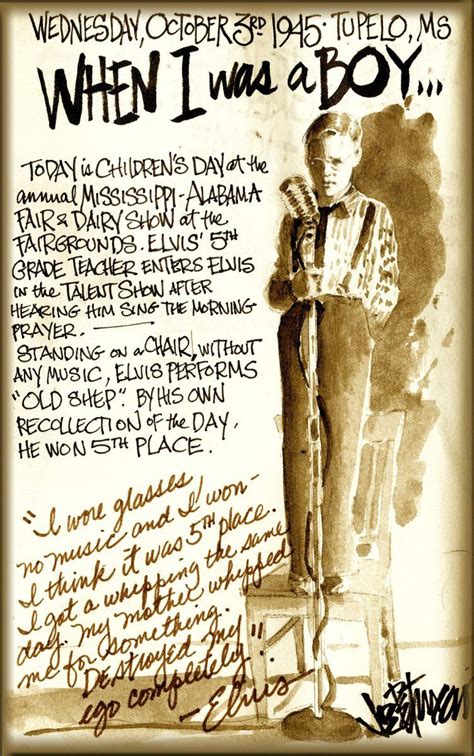 WEDNESDAY, OCTOBER 3RD 1945 · TUPELO, MS
WHEN I was a BOY...
TODAY is CHILDREN'S DAY at the
annual MISSISSIPPI-ALABAMA
FAIR & DAIRY SHOW at the
FAIRGROUNDS. ELVIS' 5TH
GRADE TEACHER ENTERS ELVIS
in the TALENT SHOW AFTER
HEARING HIM SING THE MORNING
PRAYER.
STANDING on a CHAIR, WITHOUT
ANY MUSIC, ELVIS PERFORMS
"OLD SHEP." BY HIS OWN
RECOLLECTION of the DAY,
HE WON 5TH PLACE.
"I wore glasses
no music and I won-
I think it was 5TH place.
I got a whipping the same
day. My mother whipped
me for something.
DESTROYED my
ego completely."
-Elvis-